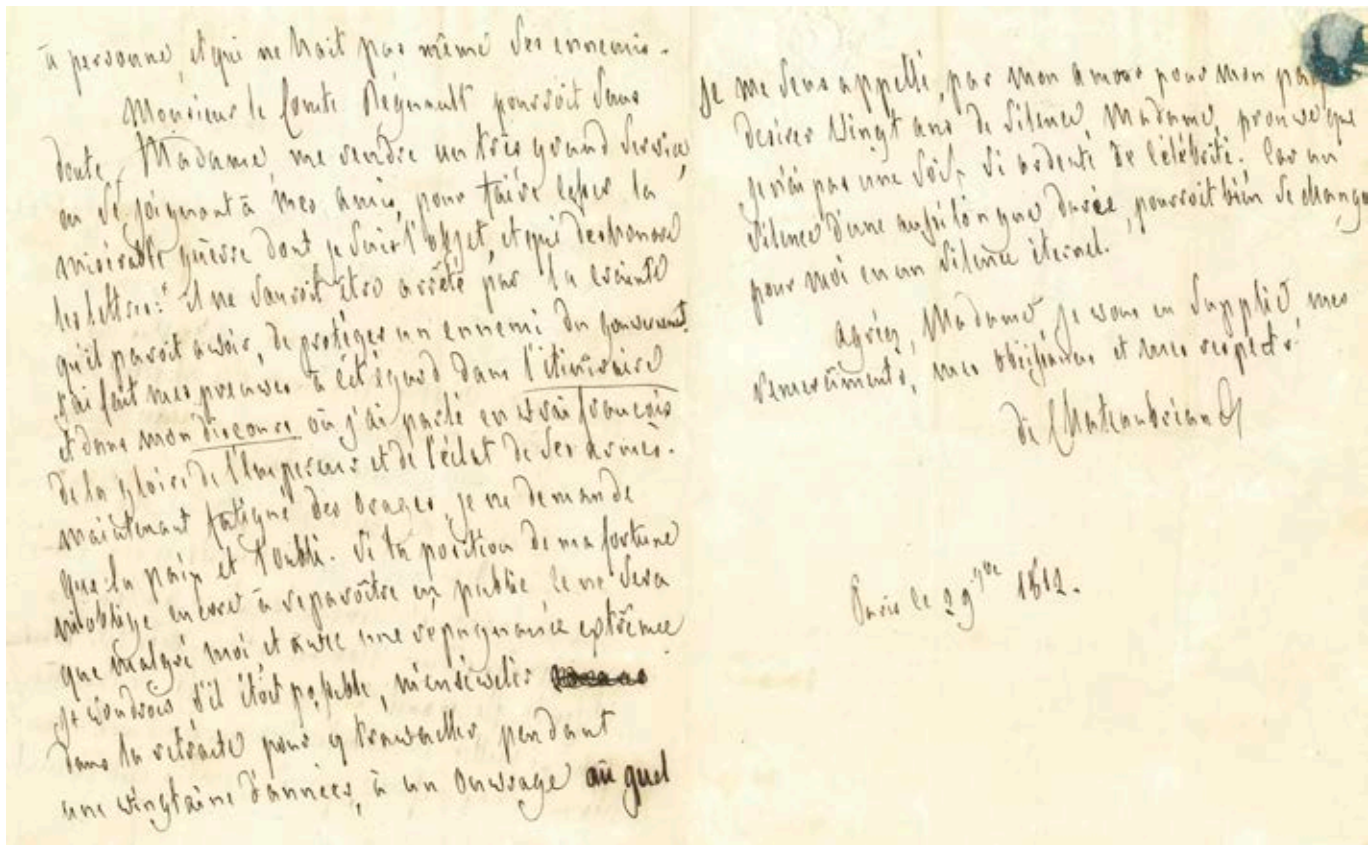 à personne, et qui ne hait pas même ses ennemis.
Monsieur le Comte Régnault pourroit sans
doute, Madame, me rendre un très grand service,
en se joignant à mes amis, pour faire cesser la
misérable guerre dont je suis l'objet, et qui deshonore
les lettres: il ne sauroit être arrêté par la crainte
qu'il paroit avoir, de protéger un ennemi du gouvernement.
J'ai fait mes preuves à cet égard dans l'itinéraire
et dans mon discours où j'ai parlé en vrai françois
de la gloire de l'Empereur et de l'éclat de ses armes.
Maintenant fatigué des orages, je ne demande
que la paix et l'oubli. Si la position de ma fortune
m'oblige encore à reparoître en public, ce ne sera
que malgré moi, et avec une répugnance extrême
je voudrois s'il étoit possible, m'ensévelir
dans la retraite pour y travailler pendant
une vingtaine d'années, à un ouvrage au quel
je me sens appellé, par mon amour pour mon pays
desirer vingt ans de silence, Madame, prouve que
je n'ai pas une soif si ardente de célébrité. Car un
silence d'une aussi longue durée, pourroit bien se changer
pour moi en un silence éternel.
agréez, Madame, je vous en supplie, mes
remerciments, mes obéissances et mes respects.
de Chateaubriand
Paris le 29 9bre 1812.